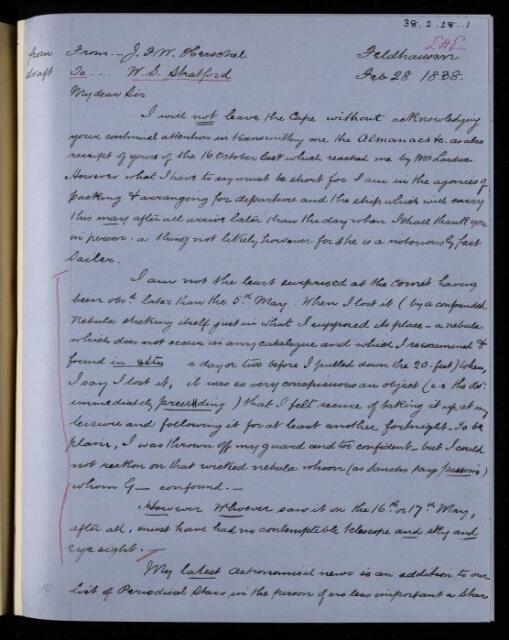 38.2.28.1
L.H.E
from From... J. F. W. Herschel Feldhausen
draft To.... W. S. Stratford Feb 28 1838.
My dear Sir
I will not leave the Cape without acknowledging
your continual attention in transmitting me the Almanacs &c. as also
receipt of yours of the 16 October last which reached me by Mr
However what I have to say must be short for I am in the agonies of
packing & arranging for departure and the ship which will carry
this may after all arrive later than the day when I shall thank you
in person - a thing not likely however for she is a notoriously fast
Sailer.
I am not the least surprised at the comet having
been obsd. later than the 5th May. When I lost it (by a confounded
Nebula sticking itself just in what I supposed its place - a nebula
which does not occur in any catalogue and which I reexamined &
found in situ a day or two before I pulled down the 20-feet) When,
I say I lost it, it was so very conspicuous an object (i.e the do:
immediately preceeding) that I felt secure of taking it up at my
leisure and following it for at least another fortnight - To be
plain, I was thrown off my guard and too confident - but I could
not reckon on that wicked nebula whom (as Sancho says)
whom G— confound. —
However Whoever saw it on the 16th or 17th May,
after all, must have had no contemptible telescope and sky and
eye sight. -
My latest astronomical news is an addition to our
list of Periodical Stars in the person of no less important a Star